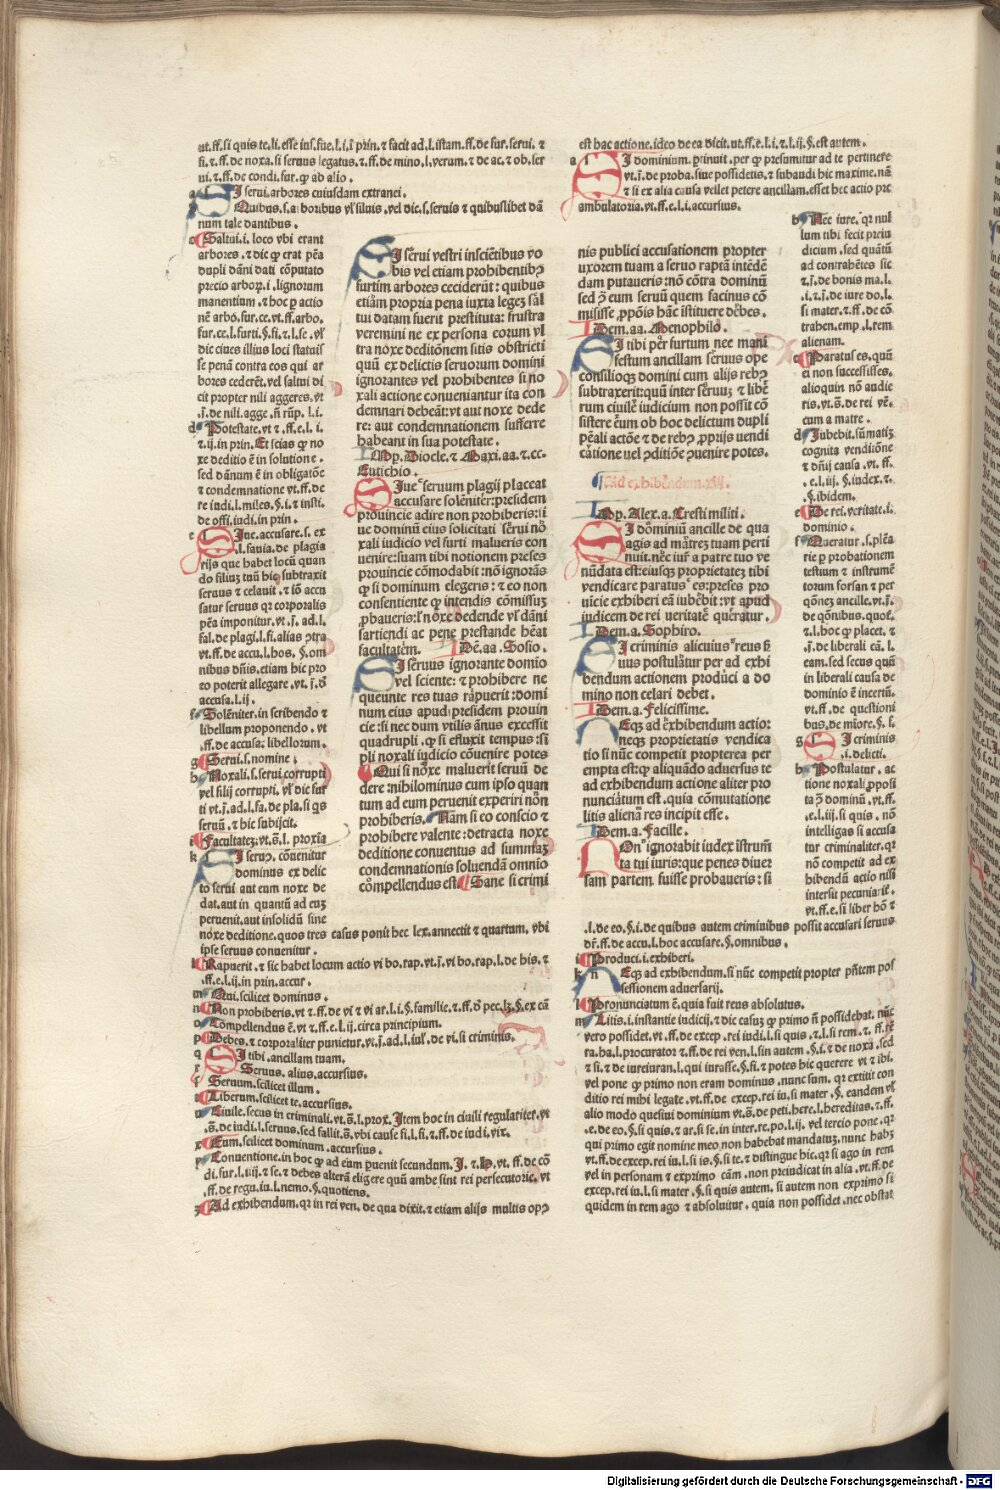 ut.ff.si quis te.li.esse ius.fue.l.i.ī prin.⁊ facit ad.l.istam.ff.de fur.serui.⁊
fi.⁊.ff.de noxa.si seruus legatus.⁊.ff.de mino.l.verum.⁊ de ac.⁊ ob.ser
ui.⁊.ff.de condi.fur.ꝙ ad alio.
SI serui.arbores cuiusdam extranei.
Quibus.s.arboribus vl siluis.vel dic.s.seruis ⁊ quibuslibet dā
num tale dantibus.
Saltui.i. loco vbi erant
arbores.⁊ dic ꝙ erat pēa
dupli dāni dati cōputato
precio arboꝝ.i.lignorum
manentium.⁊ hoc ꝑ actio
nē arbo.fur.ce.vt.ff.arbo.
fur.ce.l.furti.§.fi.⁊.l.se.vl
dic ciues illius loci statuis
se penā contra eos qui ar
bores cederēt.vel saltui di
cit propter nili aggeres.vt
.j.de nili.agge.ñ rūp.l.i.
d Potestate.vt ⁊.ff.e.l.i.
⁊.ij.in prin.Et scias ꝙ no
xe deditio ē in solutione.
sed dānum ē in obligatōe
⁊ condemnatione vt.ff.de
re iudi.l.miles.§.i.⁊ insti.
de offi.iudi.in prin.
e SIue.accusare.s.ex
.l.fauia.de plagia
rijs que habet locū quan
do filiuꝫ tuū hic subtraxit
seruus ⁊ celauit.⁊ iō accu
satur seruus qꝛ corporalis
pēa imponitur.vt.j.ad.l.
fal.de plagi.l.fi.alias ↄtra
vt.ff.de accu.l.hos.§.om
nibus dñis.etiam hic pro
eo poterit allegare.vt.j.d
accusa.l.ij.
f Solēniter.in scribendo ⁊
libellum proponendo.vt
.ff.de accusa.libellorum.
g Serui.s.nomine.
h Noxali.s.serui corrupti
vel filij corrupti.vl dic fur
ti vt.j.ad.l.fa.de pla.si qs
seruū.⁊ hic subijcit.
i Facultateꝫ.vt.s.l.proxia
k SI seruꝰ.cōuenitur
dominus ex delic
to serui aut eum noxe de
dat.aut in quantū ad euꝫ
peruenit.aut insolidū sine
noxe deditione.quos tres casus ponit hec lex.annectit ⁊ quartum.vbi
ipse seruus conuenitur.
l Rapuerit.⁊ sic habet locum actio vi bo.rap.vt.j.vi bo.rap.l.de his.⁊
.ff.e.l.ij.in prin.accur.
m Qui.scilicet dominus.
n Non prohiberis.vt ⁊.ff.de vi ⁊ vi ar.l.i.§.familie.⁊.ff.d pec.lꝫ.§.ex cā
o Compellendus ē.vt ⁊.ff.e.l.ij.circa principium.
p Debes.⁊ corporaliter punietur.vt.j.ad.l.iul.de vi.si criminis.
q SI tibi.ancillam tuam.
r Seruus.alius.accursius.
s Seruum.scilicet illum.
t Liberum.scilicet te.accursius.
u Ciuile.secus in criminali.vt.s.l.prox.Item hoc in ciuili regulariter.vt
.s.de iudi.l.seruus.sed fallit.s.vbi cause fi.l.fi.⁊.ff.de iudi.vix.
x Eum.scilicet dominum.accursius.
y Conuentione.in hoc ꝙ ad eam ꝑuenit secundum.J.⁊.hy.vt.ff.de cō
di.fur.l.iiij.⁊ se.⁊ debes alterā eligere quū ambe sint rei persecutorie.vt
.ff.de regu.iu.l.nemo.§.quotiens.
z Ad exhibendum.qꝛ in rei ven.de qua dixit.⁊ etiam alijs multis opꝰ
SI serui vestri insciētibus vo
bis vel etiam prohibentibꝫ
furtim arbores ceciderūt: quibus
etiam propria pena iuxta legeꝫ sal
tui datam fuerit prestituta: frustra
veremini ne ex persona eorum vl
tra noxe deditōnem sitis obstricti
quū ex delictis seruorum domini
ignorantes vel prohibentes si no
xali actione conueniantur ita con
demnari debeāt: vt aut noxe dede
re: aut condemnationem sufferre
habeant in sua potestate.
Imp.Diocle.⁊ Maxi.aa.⁊.cc.
Eutichio.
SIue seruum plagij placeat
accusare solēniter: presidem
prouincie adire non prohiberis: si
ue dominū eius solicitati serui no
xali iudicio vel furti malueris con
uenire: suam tibi notionem preses
prouincie cōmodabit: nō ignorās
ꝙ si dominum elegeris: ⁊ eo non
consentiente ꝙ intendis cōmissuꝫ
ꝓbaueris: noxe dedende vl dāni
sartiendi ac pene prestande hēat
facultatem. Idē.aa.Sosio.
SI seruus ignorante domio
vel sciente: ⁊ prohibere ne
queunte res tuas rapuerit: domi
num eius apud presidem prouin
cie: si nec dum vtilis ānus excessit
quadrupli. ꝙ si effluxit tempus: si
pli noxali iudicio cōuenire potes
Qui si noxe maluerit seruū de
dere: nihilominus cum ipso quan
tum ad eum peruenit experiri non
prohiberis. Nam si eo conscio ⁊
prohibere valente: detracta noxe
deditione conuentus ad summaꝫ
condemnationis soluendā omnio
cōmpellendus est. Sane si crimi
est hac actione.ideo de ea dicit.ut.ff.e.l.i.⁊.l.ij.§.est autem.
a SI dominium.ꝑtinuit.per ꝙ presumitur ad te pertinere
vt.j.de proba.siue possidetis.⁊ subaudi hic maxime.nā
⁊ si ex alia causa vellet petere ancillam.esset hec actio pre
ambulatoria.vt.ff.e.l.i.accursius.
nis publici accusationem propter
uxorem tuam a seruo raptā intēdē
dam putaueris: nō cōtra dominū
sed ꝯ eum seruū quem facinus cō
misisse ꝓpōis hāc īstituere dēbes.
Idem.aa.Menophilo.
SI tibi per furtum nec mani
festum ancillam seruus ope
consilioqꝫ domini cum alijs rebꝫ
subtraxerit: quū inter seruuꝫ ⁊ libe
rum ciuile iudicium non possit cō
sistere eum ob hoc delictum dupli
pēali actōe ⁊ de rebꝫ ꝓprijs uendi
cātione uel ꝯditiōe ꝯuenire potes.
Ad exhibendum.
Imp.Alex.a.Cresti militi.
SI dōminiū ancille de qua
agis ad matreꝫ tuam perti
nuit.nec iusꝰ a patre tuo ve
nūdata est: eiusqꝫ proprietateꝫ tibi
vendicare paratus es: preses pro
uicie exhiberi eā iubebit: vt apud
iudicem de rei ueritate queratur.
Idem.a.Sophiro.
SI criminis alicuius reus ß
uus postulatur per ad exhi
bendum actionem produci a do
mino non celari debet.
Idem.a.Felicissime.
NEqꝫ ad exhibendum actior
neqꝫ proprietatis vendica
tio si nūc competit propterea per
empta est: qꝫ aliquādo aduersus te
ad exhibendum actione aliter pro
nunciātum est.quia cōmutatione
litis alienā res incipit esse.
Idem.a.Facille.
NOn ignorabit iudex īstrum
ta tui iuris: que penes diuer
sam partem fuisse probaueris: si
b Nec iure.qꝛ nul
lum tibi fecit preiu
dicium.sed quātū
ad contrahētes sic
⁊.j.de bonis ma.l.
.i.⁊.j.de iure do.l.
si mater.⁊.ff.de cō
trahen.emp.l.rem
alienam.
c Paratus es.quū
ei non successisses.
alioquin nō audie
ris.vt.s.de rei vē.
cum a matre.
d Jubebit.sūmatiꝫ
cognita venditiōne
⁊ dñij causa.vt.ff.
.e.l.iij.§.iudex.⁊.
.§.ibidem.
e De rei.veritate.i.
dominio.
f Queratur.s.plēa
rie ꝑ probationem
testium ⁊ instrumē
torum forsan ⁊ per
qōneꝫ ancille.vt.j.
de qōnibus.quot.
⁊.l.hoc ꝙ placet.⁊
.j.de liberali cā.l.
eam.sed secus quū
in liberali causa de
dominio ē incertū.
vt.ff.de questioni
bus.de miore.§.s.
g SI criminis
.i.delicti.
h Postulatur.ac
tione noxali ꝓposi
ta ꝯ dominū.vt.ff.
.e.l.iij.si quis.nō
intelligas si accusa
tur criminaliter.qꝛ
nō competit ad ex
hibendū actio nisi
intersit pecuniarie.
vt.ff.e.si liber hō ⁊
.l.de eo.§.i.de quibus autem criminibus possit accusari seruus
dr̄.ff.de accu.l.hoc accusare.§.omnibus.
i Produci.i.exhiberi.
k NEqꝫ ad exhibendum.si nūc competit propter pñtem pos
sessionem aduersarij.
l Pronunciatum ē.quia fuit reus absolutus.
m Litis.i.instantie iudicij.⁊ dic casuꝫ ꝙ primo ñ possidebat.nūc
vero possidet.vt.ff.de excep.rei iudi.l.si quis.⁊.l.si rem.⁊.ff.rē
ra.ha.l.procurator ⁊.ff.de rei ven.l.sin autem.§.i.⁊ de noxa.sed
⁊ si.⁊ de iureiuran.l.qui iurasse.§.fi.⁊ potes hic querere vt ⁊ ibi.
vel pone ꝙ primo non eram dominus.nunc sum.qꝛ extitit con
ditio rei mihi legate.vt.ff.de excep.rei iu.si mater.§.eandem vl
alio modo quesiui dominium vt.s.de peti.here.l.hereditas.⁊.ff.
.e.de eo.§.si quis.⁊ ar.si se.in inter.re.po.l.ij.vel tercio pone.qꝛ
qui primo egit nomine meo.non habebat mandatuꝫ.nunc habꝫ
vt.ff.de excep.rei iu.l.si is.§.si te.⁊ distingue hic.qꝛ si ago in rem
vel in personam ⁊ exprimo cām.non preiudicat in alia.vt.ff.de
excep.rei iu.l.si mater.§.si quis autem.si autem non exprimo si
quidem in rem ago ⁊ absoluitur.quia non possidet.nec obstat
Digitalisierung gefördert durch die Deutsche Forschungsgemeinschaft - DFG